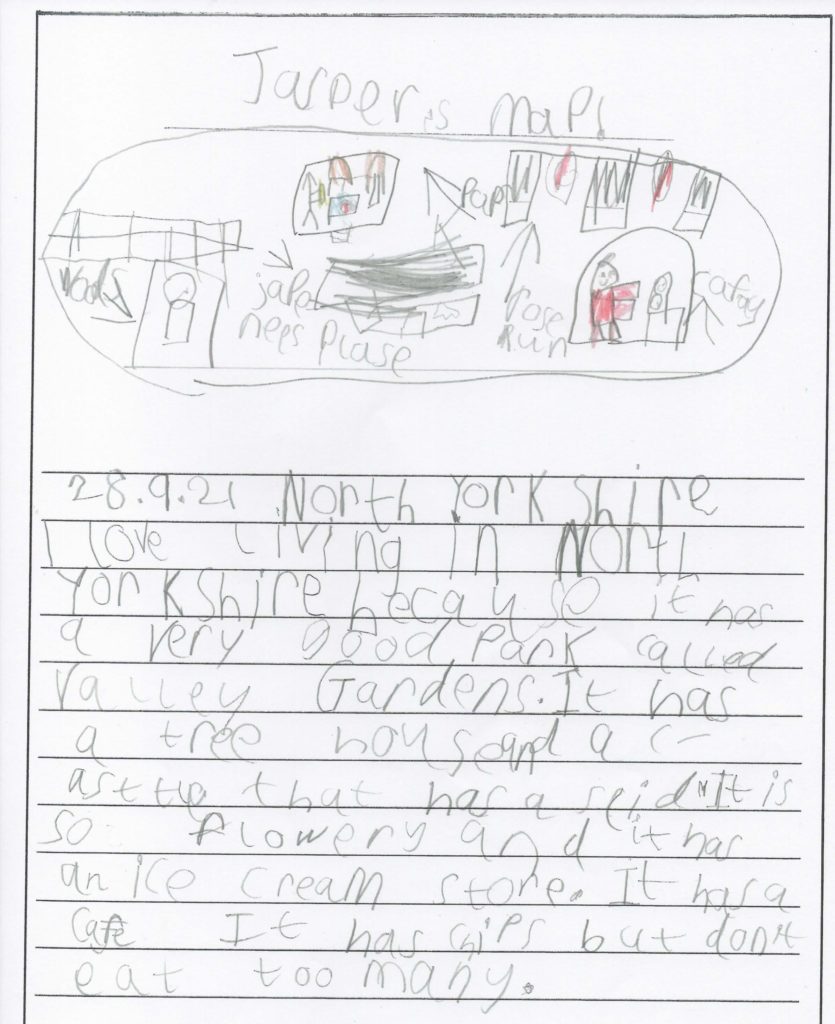 Jasper's map!
Park
Woods
japa
nees Plase
rose
Run
cafay
28.9.21 North Yorkshire
I love living in North
Yorkshire because it has
a very good park called
Valley Gardens. It has
a tree house and a c-
asttle that has a slid. It is
so flowery and it has
an ice cream store. It has a
Cafe It has chips but don't
eat too many.